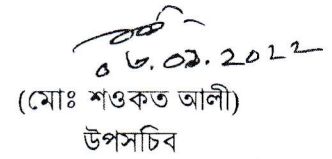 ০৬.০৯.2022
(মোঃ শওকত আলী)
উপসচিব